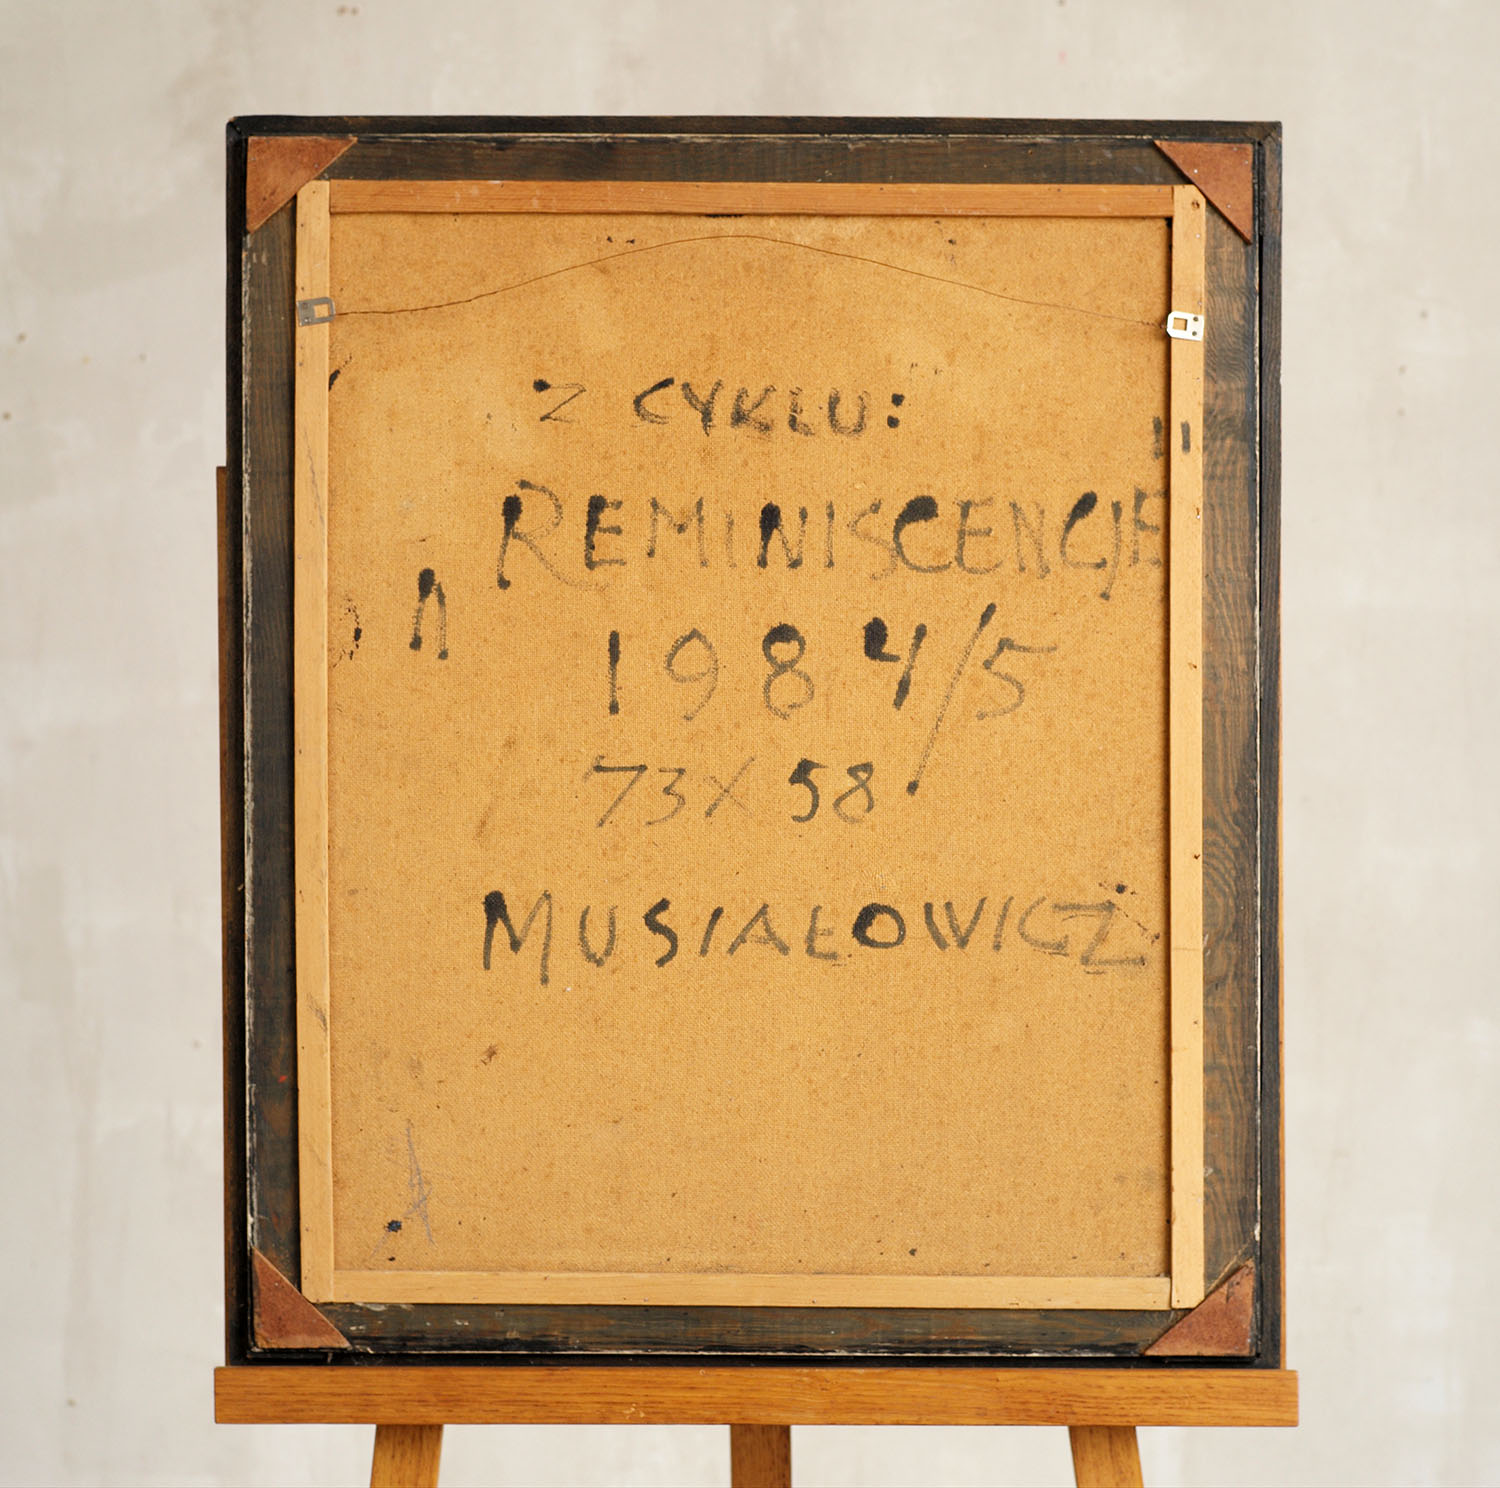 Z CYKLU:
REMINISCENCJE"
1984/5
73X58
MUSIAŁOWICZ